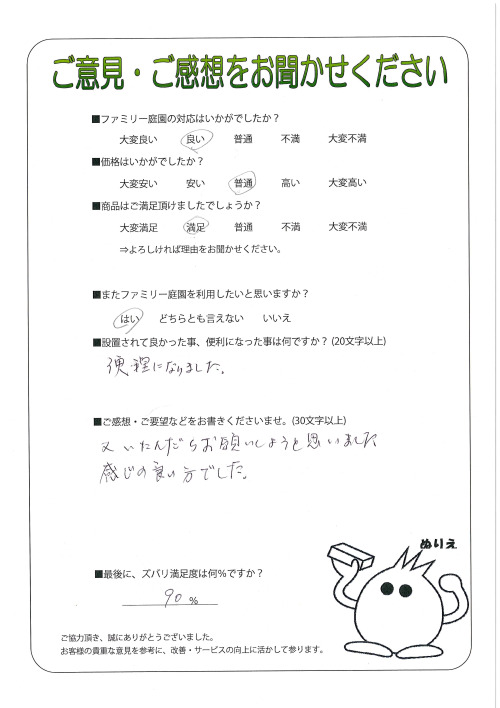 ご意見・ご感想をお聞かせください
■ファミリー庭園の対応はいかがでしたか？
大変良い 良い 普通 不満 大変不満
■価格はいかがでしたか？
大変安い 安い 普通 高い 大変高い
■商品はご満足頂けましたでしょうか？
大変満足 満足 普通 不満 大変不満
⇒よろしければ理由をお聞かせください。
■またファミリー庭園を利用したいと思いますか？
はい どちらとも言えない いいえ
■設置されて良かった事、便利になった事は何ですか？(20文字以上)
便理になりました。
■ご感想・ご要望などをお書きくださいませ。(30文字以上)
又いたんだらお願いしようと思いました
感じの良い方でした。
ぬりえ
■最後に、ズバリ満足度は何％ですか？
90 %
ご協力頂き、誠にありがとうございました。
お客様の貴重な意見を参考に、改善・サービスの向上に活かして参ります。